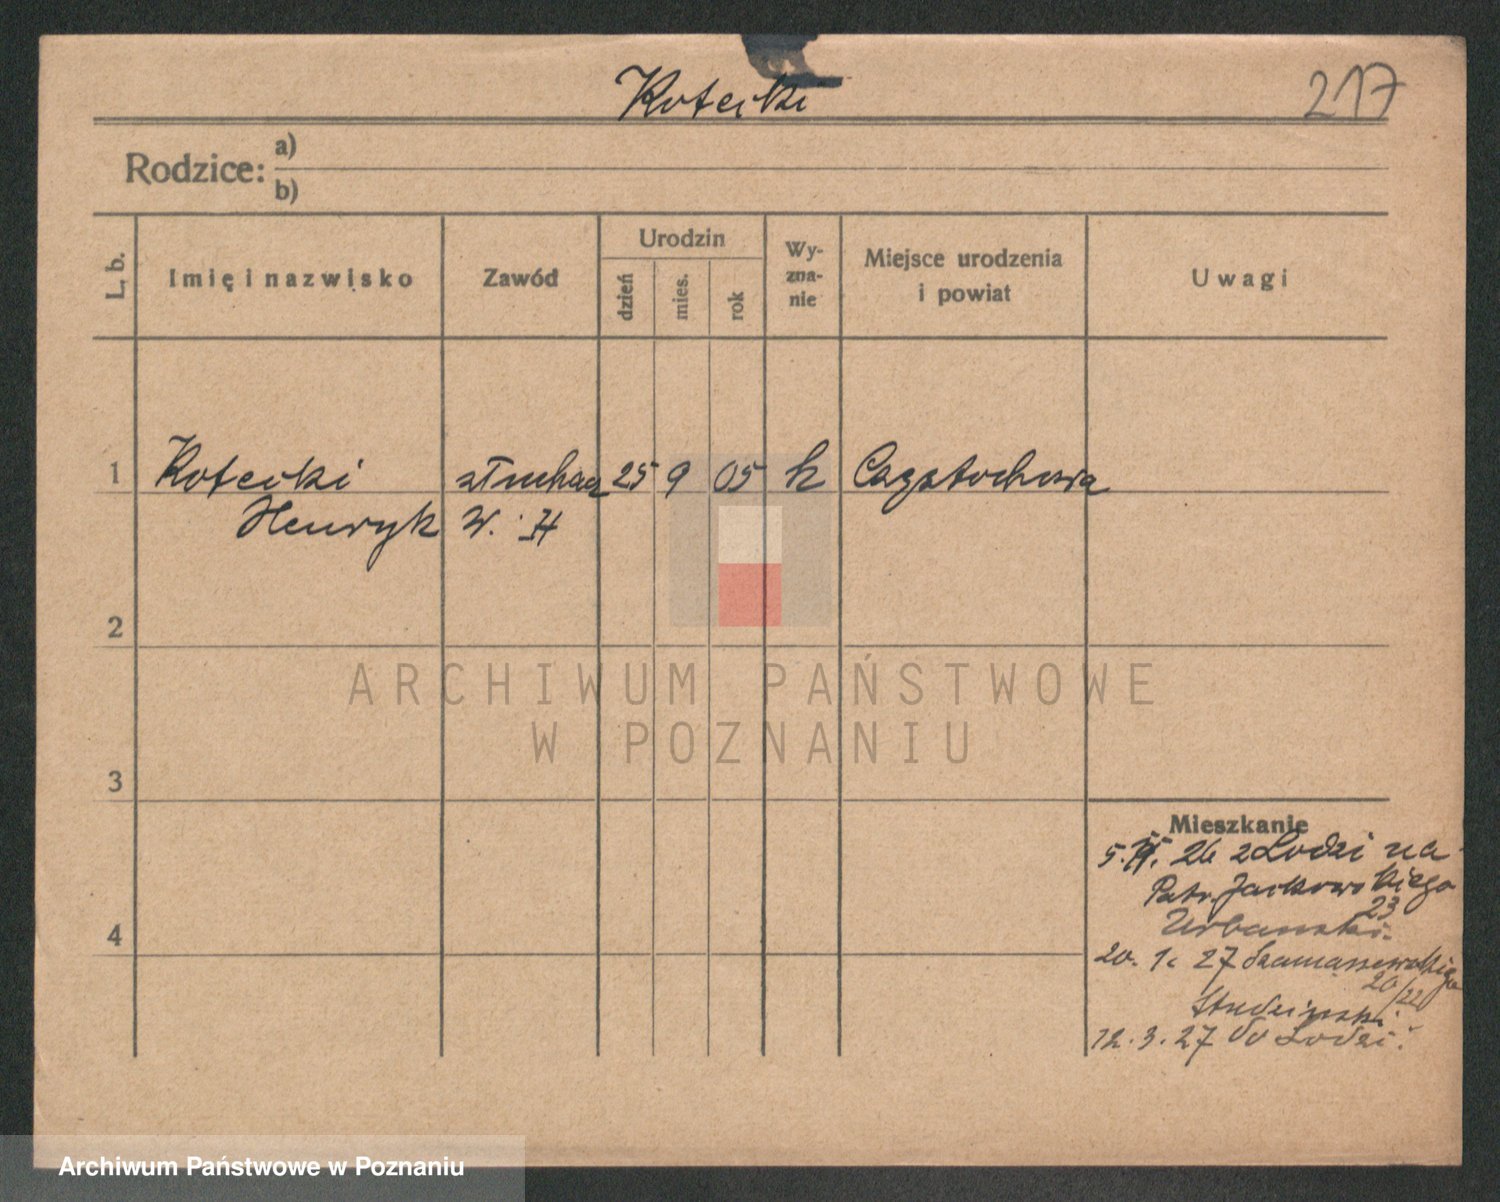 Kotecki
217
Rodzice:
a)
b)
L. b.
Imię i nazwisko
Zawód
Urodzin
dzień
mies.
rok
Wy-
zna-
nie
Miejsce urodzenia
i powiat
Uwagi
1
Kotecki
Henryk
słuchacz
W. H
25
9
05
k
Częstochowa
2
3
4
ARCHIWUM PAŃSTWOWE
W POZNANIU
Mieszkanie
26 z Łodzi na
Patr. Jackowskiego
23
Urbanski
20. 1. 27 Szamarzewskiego
20/22
Studziński
12. 3. 27 do Łodzi.
Archiwum Państwowe w Poznaniu